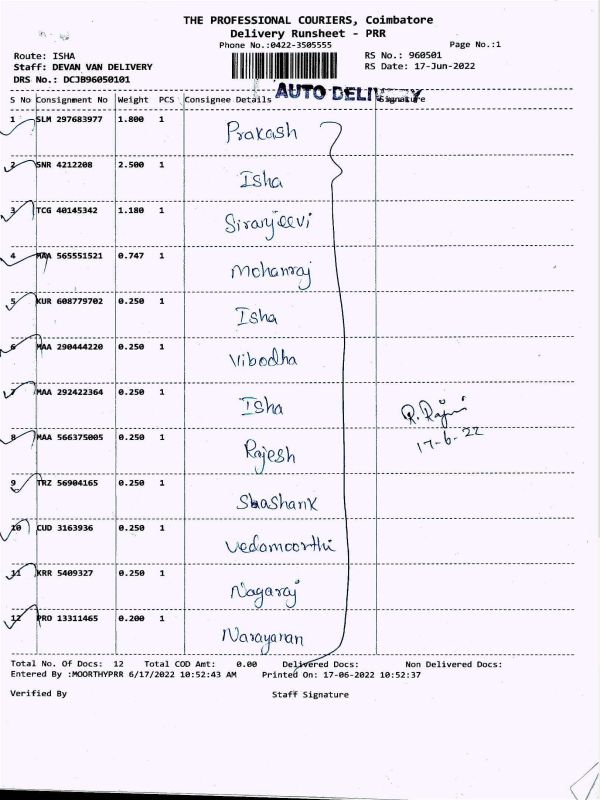 THE PROFESSIONAL COURIERS, Coimbatore
Delivery Runsheet - PRR
Phone No.:0422-3505555 Page No.:1
Route: ISHA RS No.: 960501
Staff: DEVAN VAN DELIVERY RS Date: 17-Jun-2022
DRS No.: DCJB96050101
AUTO DELIVERY
S No Consignment No Weight PCS Consignee Details Signature
1 SLM 297683977 1.800 1 Prakash
2 SNR 4212208 2.500 1 Isha
3 TCG 40145342 1.180 1 Siranjeevi
4 MAA 565551521 0.747 1 Mohanraj
5 KUR 608779702 0.250 1 Isha
6 MAA 290444220 0.250 1 Vibodha
7 MAA 292422364 0.250 1 Isha
R. Rajni
17-6-22
8 MAA 566375005 0.250 1 Rajesh
9 TRZ 56904165 0.250 1 Shashank
10 CUD 3163936 0.250 1 Vedamoorthi
11 KRR 5409327 0.250 1 Nagaraj
12 PRO 13311465 0.200 1 Narayanan
Total No. Of Docs: 12 Total COD Amt: 0.00 Delivered Docs: Non Delivered Docs:
Entered By :MOORTHYPRR 6/17/2022 10:52:43 AM Printed On: 17-06-2022 10:52:37
Verified By Staff Signature